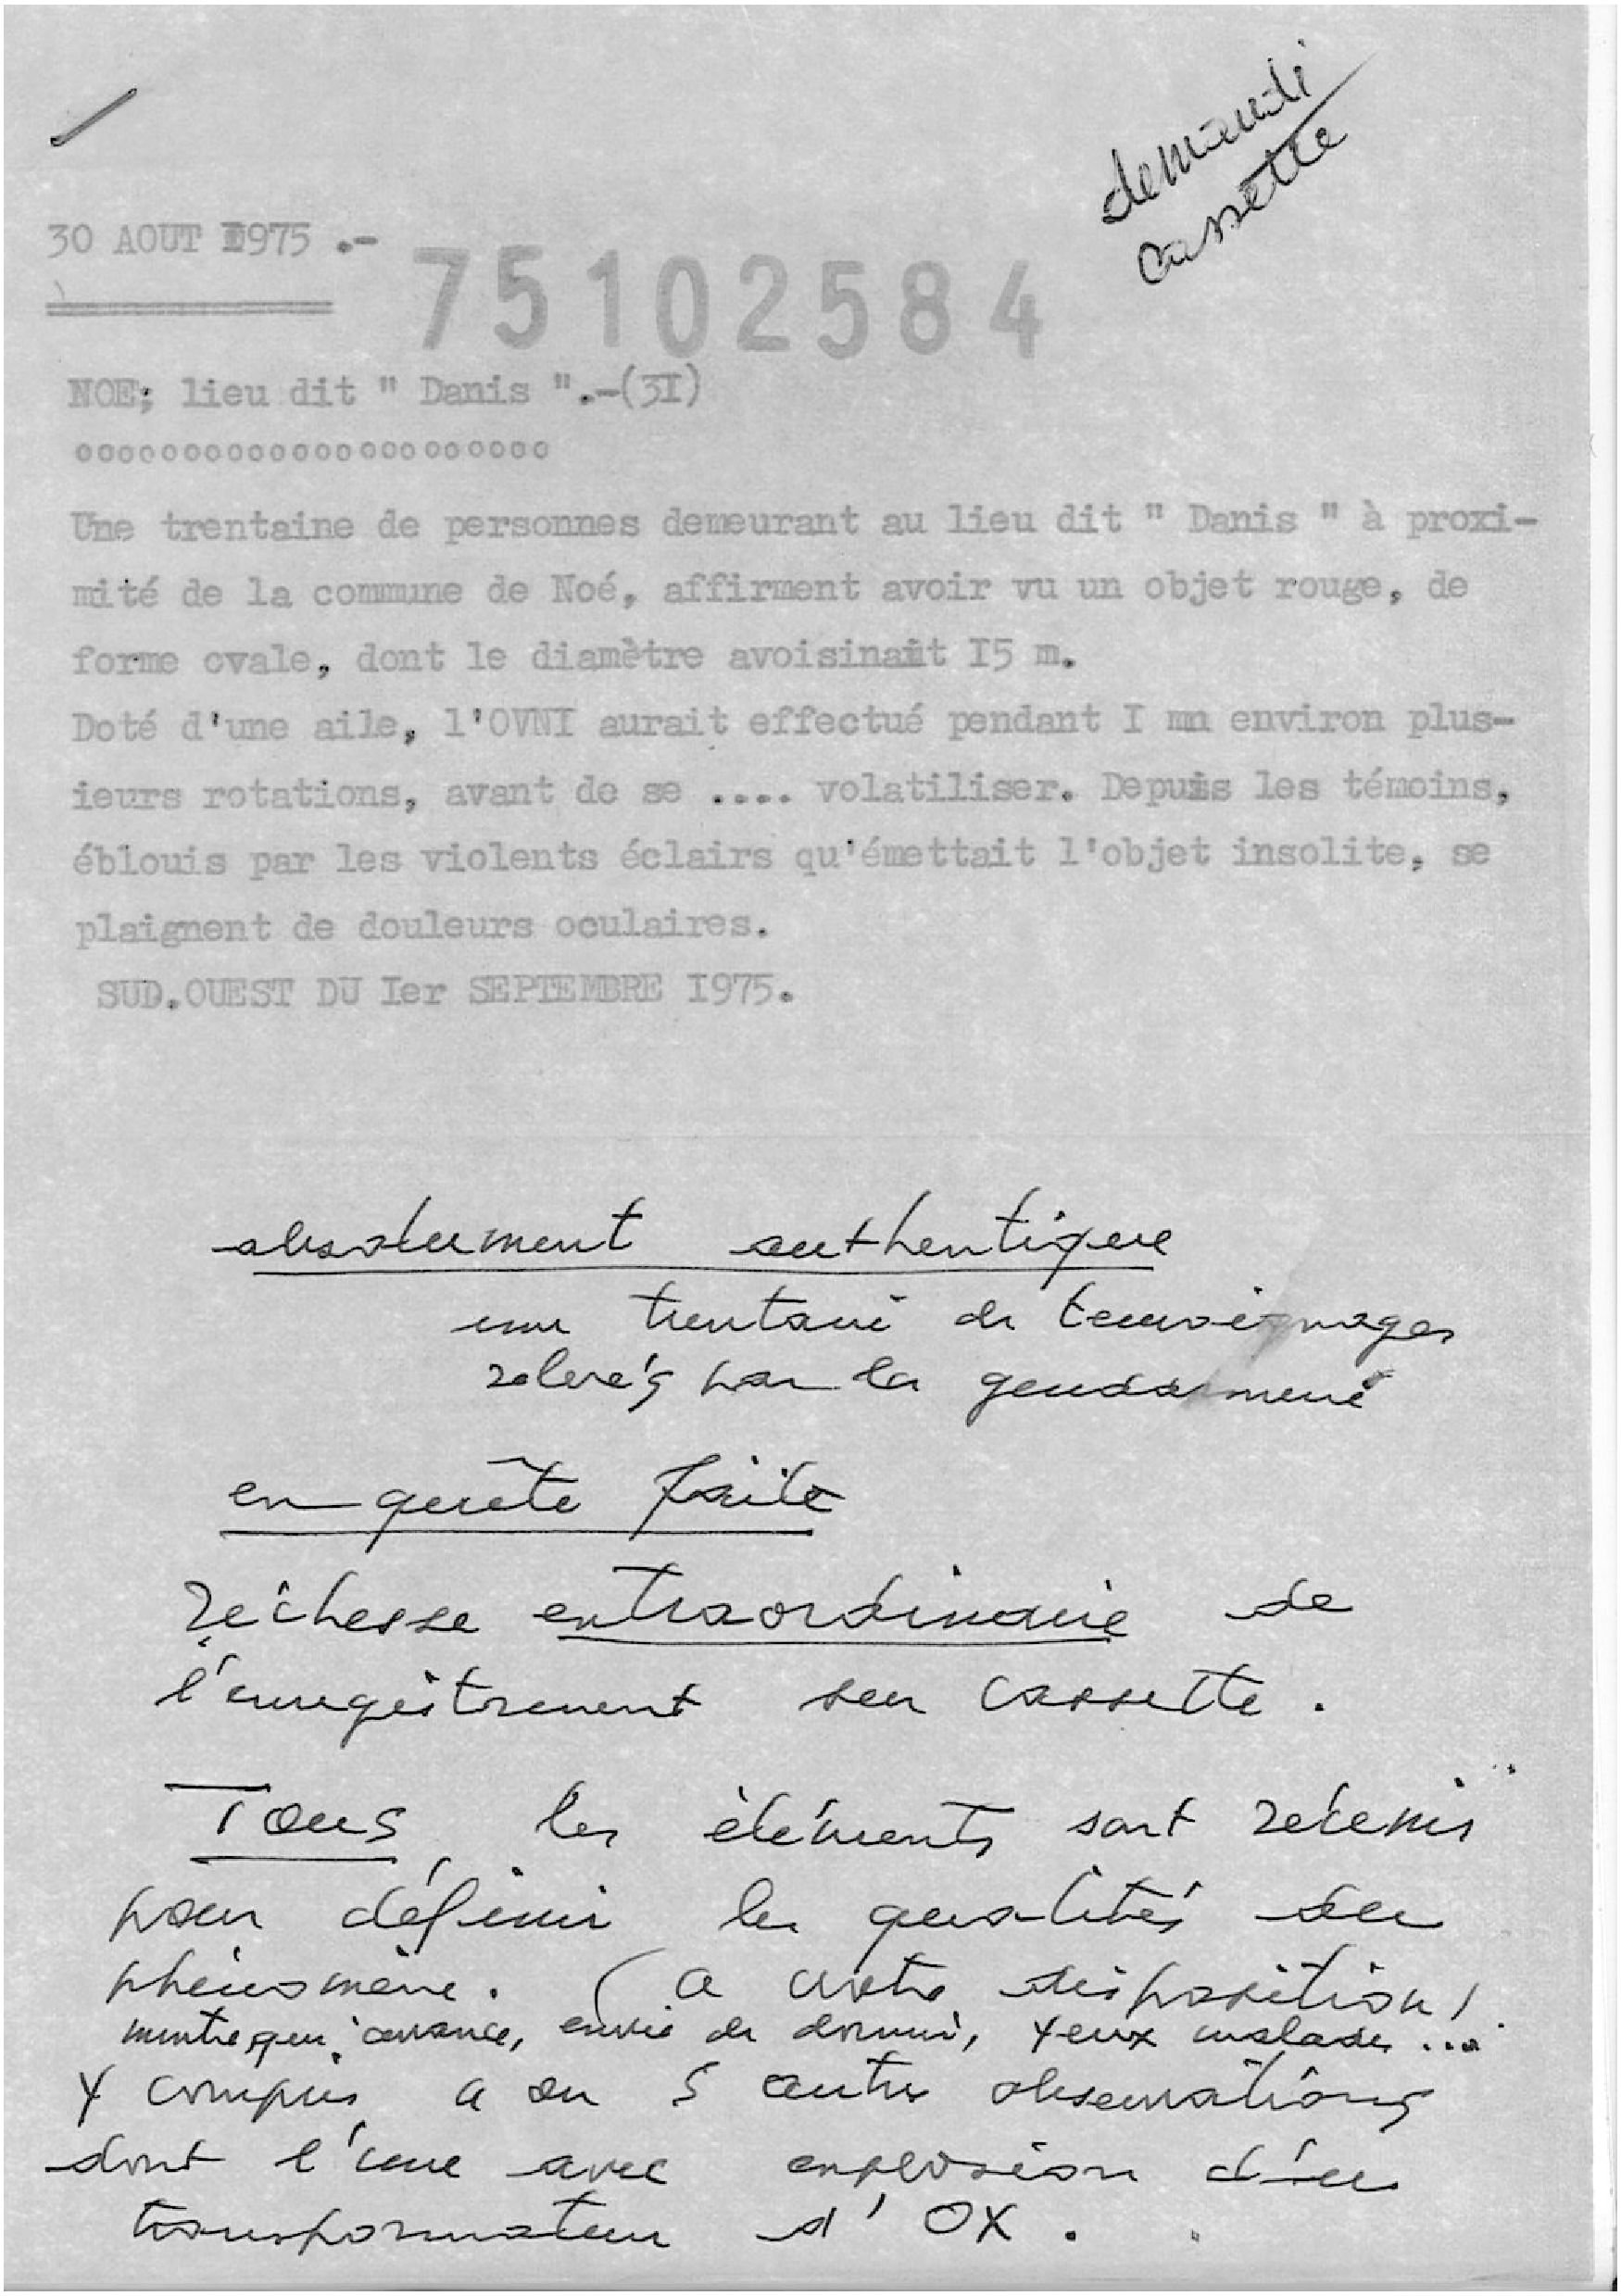 demandé
cassette
30 AOUT 1975 .-
75102584
NOE; lieu dit " Danis ".-(3I)
oooooooooooooooooooooo
Une trentaine de personnes demeurant au lieu dit " Danis " à proxi-
mité de la commune de Noé, affirment avoir vu un objet rouge, de
forme ovale, dont le diamètre avoisinait I5 m.
Doté d'une aile, l'OVNI aurait effectué pendant I mn environ plus-
ieurs rotations, avant de se .... volatiliser. Depuis les témoins,
éblouis par les violents éclairs qu'émettait l'objet insolite, se
plaignent de douleurs oculaires.
SUD.OUEST DU Ier SEPTEMBRE I975.
absolument authentique
une trentaine de temoignages
relevés par la gendarmerie
enquête faite
richesse extraordinaire de
l'enregistrement sur cassette.
Tous les éléments sont retenus
pour définir les qualités du
phénomène. (a votre disposition)
montre qui avance, envie de dormir, yeux malades ...
y compris 4 ou 5 autres observations
dont l'une avec explosion d'un
transformateur d'OX.